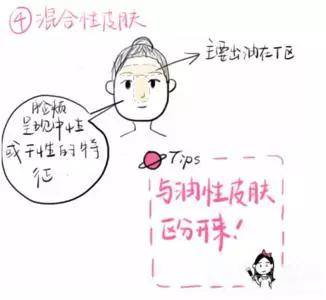 ④混合性皮肤
主要出油在T区
脸颊
呈现中性
或干性的特
征
Tips
与油性皮肤
区分开来!